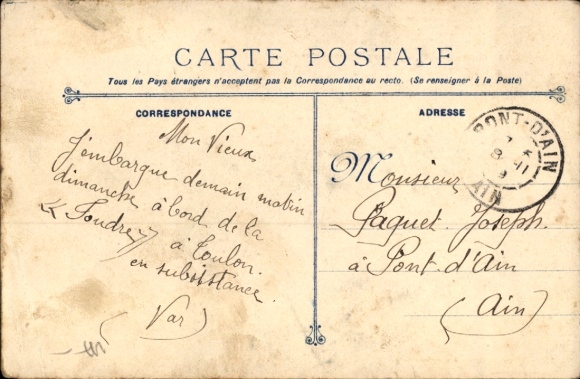 CARTE POSTALE
Tous les Pays étrangers n'acceptent pas la Correspondance au recto. (Se renseigner à la Poste)
CORRESPONDANCE
Mon Vieux
J'embarque demain matin
dimanche à bord de la
« Foudre »
à Toulon.
en subsistance.
(Var)
ADRESSE
PONT-D'AIN
AIN
Monsieur
Paquet Joseph.
à Pont d'Ain
(Ain)